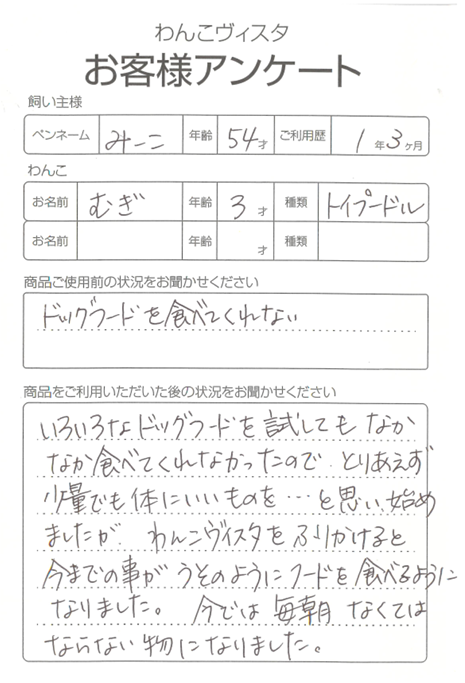 わんこヴィスタ
お客様アンケート
飼い主様
ペンネーム みーこ 年齢 54才 ご利用歴 1年3ヶ月
わんこ
お名前 むぎ 年齢 3才 種類 トイプードル
お名前 年齢 才 種類
商品ご使用前の状況をお聞かせください
ドッグフードを食べてくれない
商品をご利用いただいた後の状況をお聞かせください
いろいろなドッグフードを試しても なか
なか食べてくれなかったので、とりあえず
少量でも体にいいものを…と思い始め
ましたが、わんこヴィスタをふりかけると
今までの事がうそのようにフードを食べるように
なりました。今では毎朝なくては
ならない物になりました。